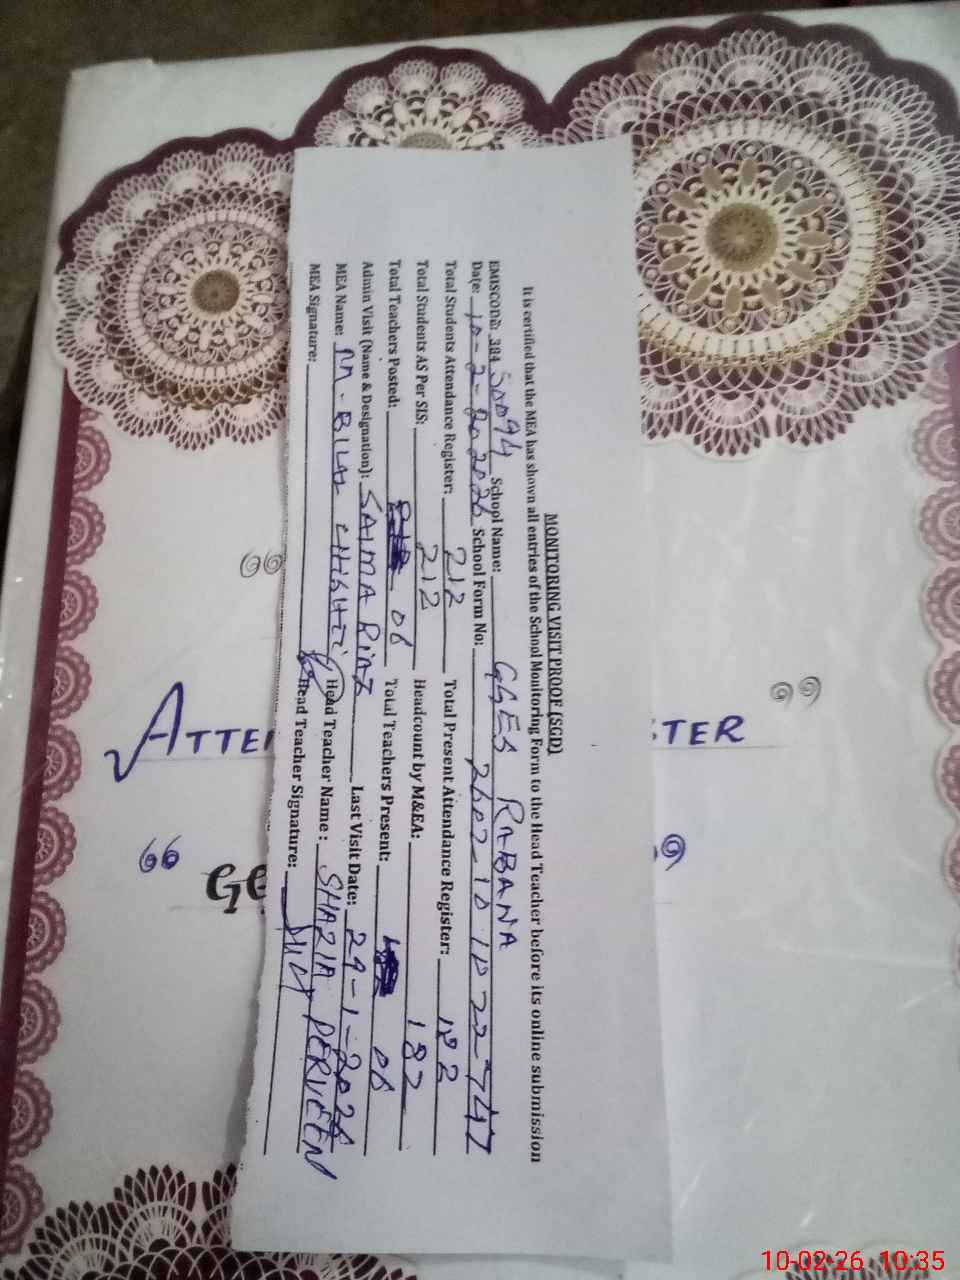 MONITORING VISIT PROOF (SGD)
It is certified that the MEA has shown all entries of the School Monitoring Form to the Head Teacher before its online submission
EMISCODE: 384 50094 School Name: GGES RABANA
Date: 10-2-2026 School Form No: 2602-10 10 22747
Total Students Attendance Register: 212 Total Present Attendance Register: 182
Total Students AS Per SIS: 212 Headcount by M&EA: 182
Total Teachers Posted: 08 Total Teachers Present: 08
Admin Visit (Name & Designation): SAIMA RIAZ Last Visit Date: 29-1-2026
MEA Name: M-BILAL CHISHTI Head Teacher Name: SHAZIA PERVEEN
MEA Signature: Head Teacher Signature:
ATTE STER
GE
10-02-26 10:35